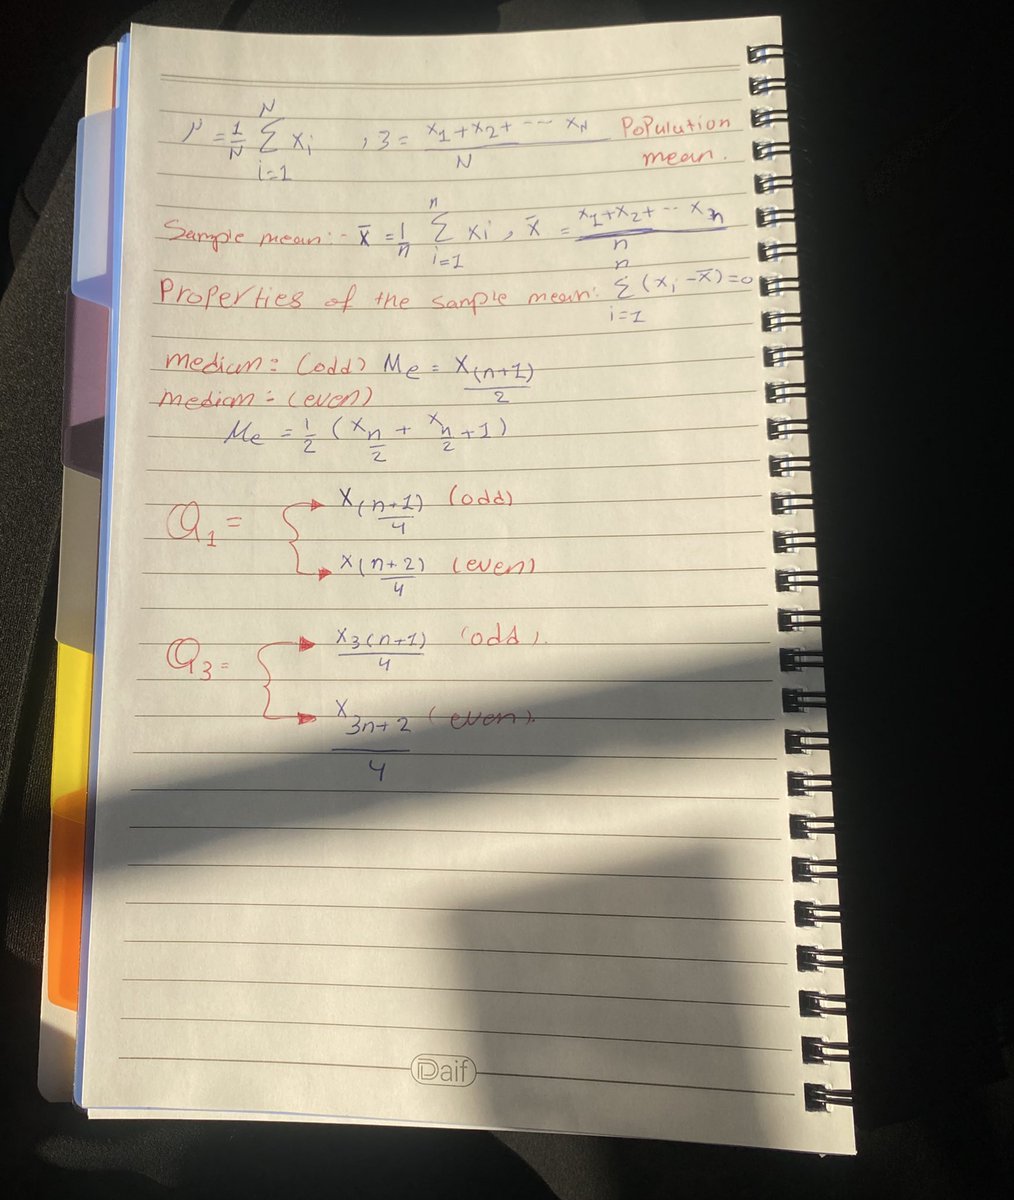 μ = 1/N Σ_{i=1}^{N} x_i , 3 = (x_1+x_2+ --- x_N)/N Population
mean.
Sample mean:- x̄ = 1/n Σ_{i=1}^{n} x_i , x̄ = (x_1+x_2+ -- x_n)/n
Properties of the sample mean: Σ_{i=1}^{n} (x_i - x̄) = 0
median: (odd) Me = x_{(n+1)/2}
median: (even)
Me = 1/2 (x_{n/2} + x_{n/2 + 1})
Q_1 =
x_{(n+1)/4} (odd)
x_{(n+2)/4} (even)
Q_3 =
x_{3(n+1)/4} (odd).
x_{(3n+2)/4} (even).
Daif